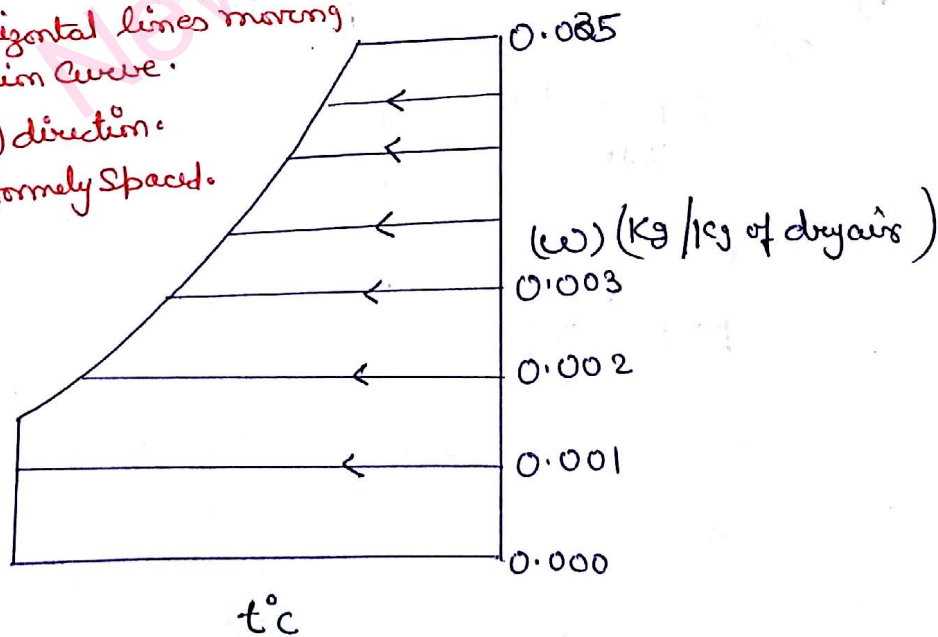 izontal lines moving,
ion Curve.
) direction.
ormely Spaced.
0.035
(ω) (Kg/Kg of dryair)
0.003
0.002
0.001
0.000
t°c